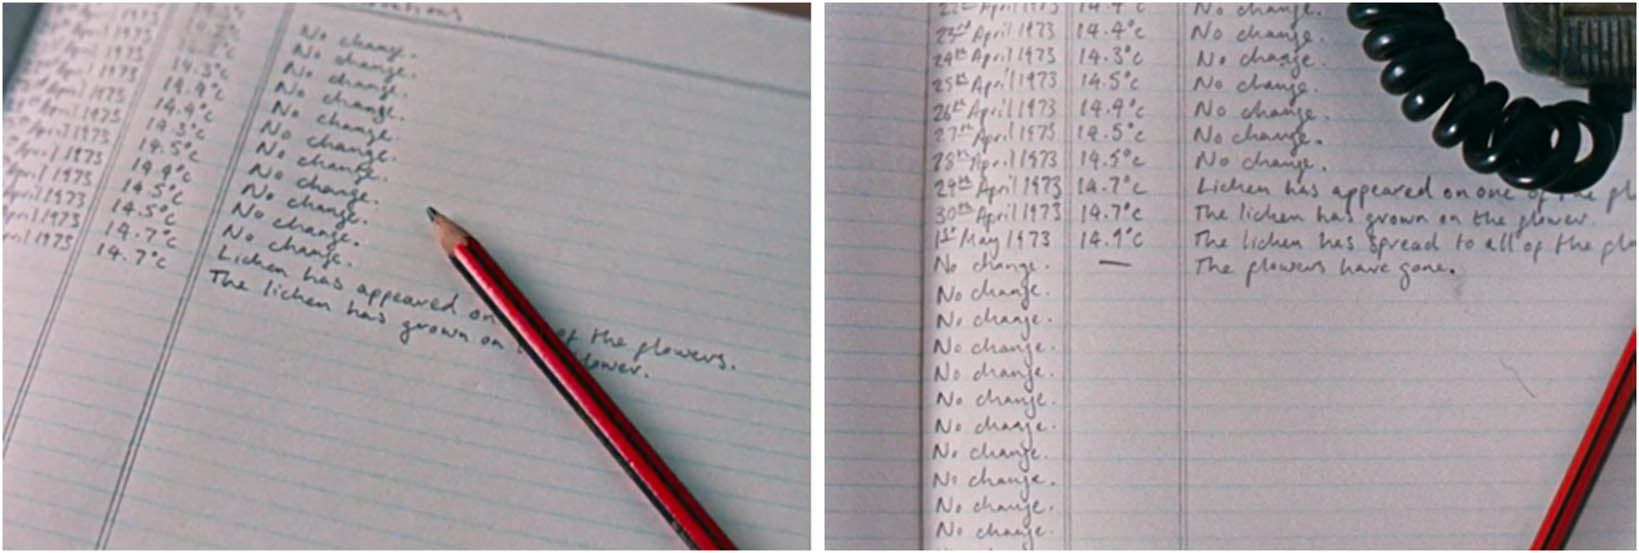 No change.
April 1973 14.2°c No change.
April 1973 14.2°c No change.
April 1973 14.3°c No change.
April 1973 14.4°c No change.
April 1973 14.4°c No change.
April 1973 14.3°c No change.
April 1973 14.5°c No change.
April 1973 14.4°c No change.
April 1973 14.5°c No change.
April 1973 14.5°c No change.
April 1973 14.7°c Lichen has appeared on of the flowers.
1973 14.7°c The lichen has grown on flower.
22nd April 1973 14.4°c No change.
23rd April 1973 14.4°c No change.
24th April 1973 14.3°c No change.
25th April 1973 14.5°c No change.
26th April 1973 14.4°c No change.
27th April 1973 14.5°c No change.
28th April 1973 14.5°c No change.
29th April 1973 14.7°c Lichen has appeared on one of the fl
30th April 1973 14.7°c The lichen has grown on the flower.
1st May 1973 14.9°c The lichen has spread to all of the flo
No change. — The flowers have gone.
No change.
No change.
No change.
No change.
No change.
No change.
No change.
No change.
No change.
No change.